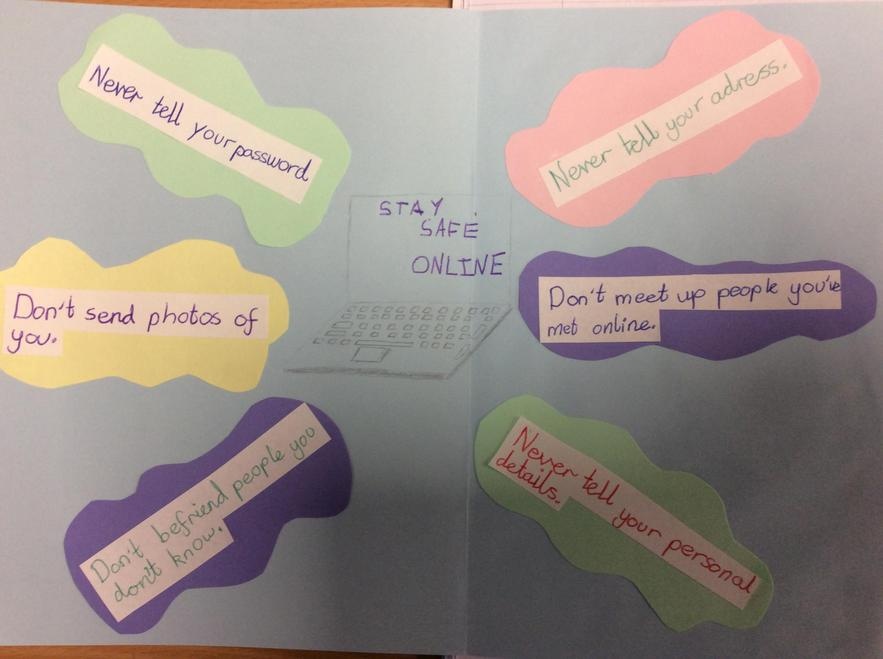 Never tell your password
Never tell your adress.
STAY
SAFE
ONLINE
Don't send photos of
you.
Don't meet up people you've
met online.
Don't befriend people you
don't know.
Never tell your personal
details.